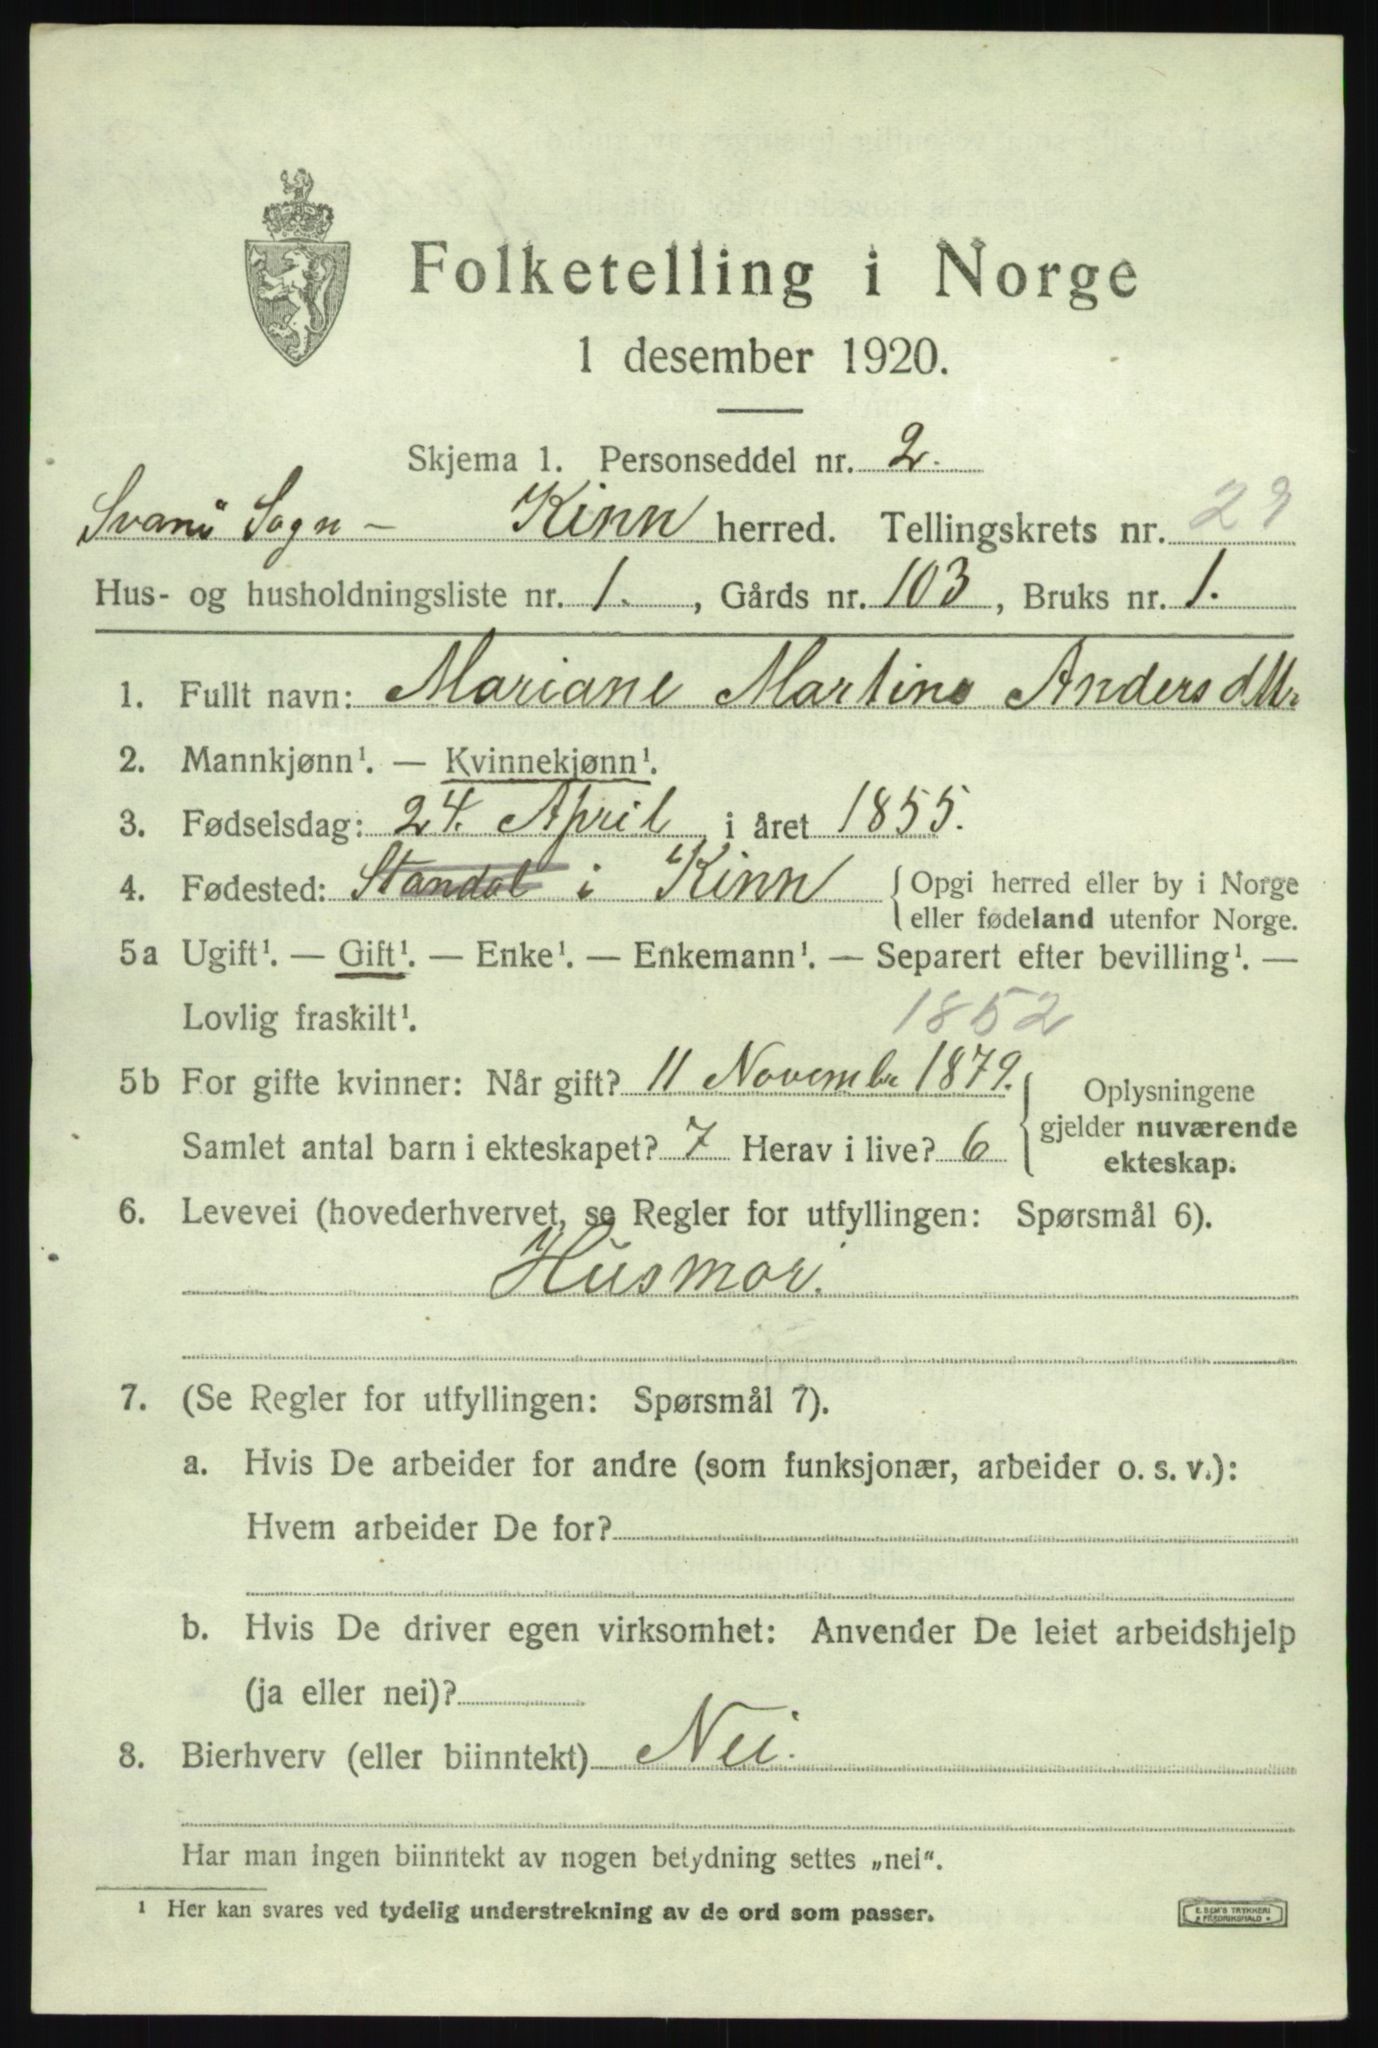 Folketelling i Norge
1 desember 1920.
Skjema 1. Personseddel nr. 2.
Svanö Sogn – Kinn herred. Tellingskrets nr. 29
Hus- og husholdningsliste nr. 1., Gårds nr. 103, Bruks nr. 1.
1. Fullt navn: Mariane Martine Andersdttr
2. Mannkjønn¹. — Kvinnekjønn¹.
3. Fødselsdag: 24. April i året 1855.
4. Fødested: Standal i Kinn { Opgi herred eller by i Norge
eller fødeland utenfor Norge.
5a Ugift¹. — Gift¹. — Enke¹. — Enkemann¹. — Separert efter bevilling¹. —
Lovlig fraskilt¹.
1852
5b For gifte kvinner: Når gift? 11 Novembr 1879. { Oplysningene
gjelder nuværende
Samlet antal barn i ekteskapet? 7 Herav i live? 6
ekteskap.
6. Levevei (hovederhvervet, se Regler for utfyllingen: Spørsmål 6).
Husmor.
7. (Se Regler for utfyllingen: Spørsmål 7).
a. Hvis De arbeider for andre (som funksjonær, arbeider o. s. v.):
Hvem arbeider De for?
b. Hvis De driver egen virksomhet: Anvender De leiet arbeidshjelp
(ja eller nei)?
8. Bierhverv (eller biinntekt) Nei.
Har man ingen biinntekt av nogen betydning settes „nei".
¹ Her kan svares ved tydelig understrekning av de ord som passer.
E. SEM'S TRYKKERI
FREDRIKSHALD